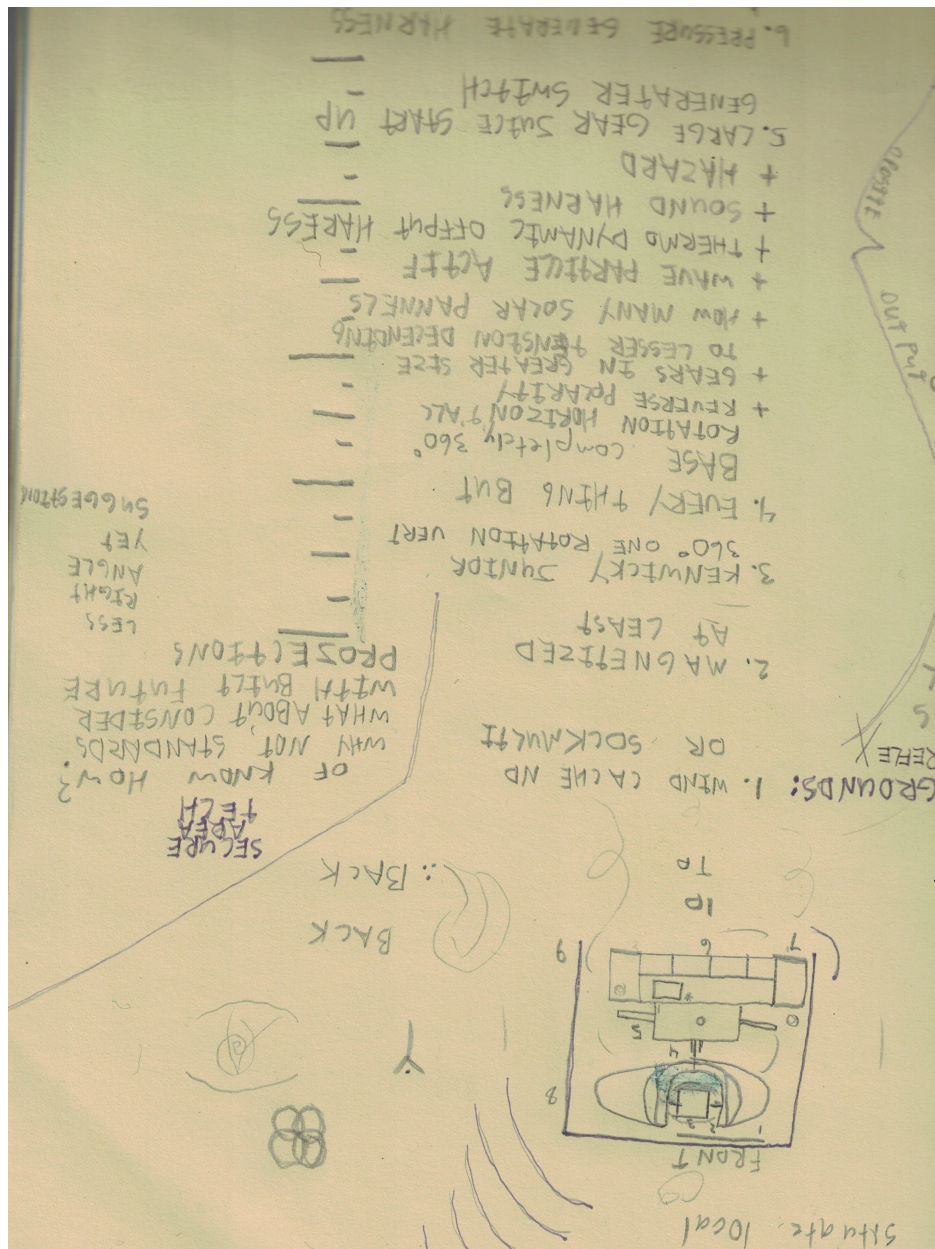 situate local
FRONT
1 2 3
8
4
5
7 6 9
10
TO
BACK
∴ BACK
SECURE
AREA
TECH
GROUNDS: 1. WIND CACHE ND
OR SOCKMULTI
REFLE
S
OF KNOW HOW?
WHY NOT STANDARDS
WHAT ABOUT CONSIDER
WITH BUILT FUTURE
PROJECTIONS
LESS
RIGHT
ANGLE
YET
SUGGESTION
2. MAGNETIZED
AT LEAST
3. KENWICKY JUNIOR
360° ONE ROTATION VERT
4. EVERY THING BUT
BASE completely 360°
ROTATION HORIZONTALL
+ REVERSE POLARITY
+ GEARS IN GREATER SIZE
TO LESSER TENSION DECENDING
+ HOW MANY SOLAR PANNELS
+ WAVE PARTICLE ACTIF
+ THERMO DYNAMIC OFFPUT HARESS
+ SOUND HARNESS
+ HAZARD
5. LARGE GEAR JUICE START UP
GENERATER SWITCH
6. PRESSURE GENERATE HARNESS
OUTPUT